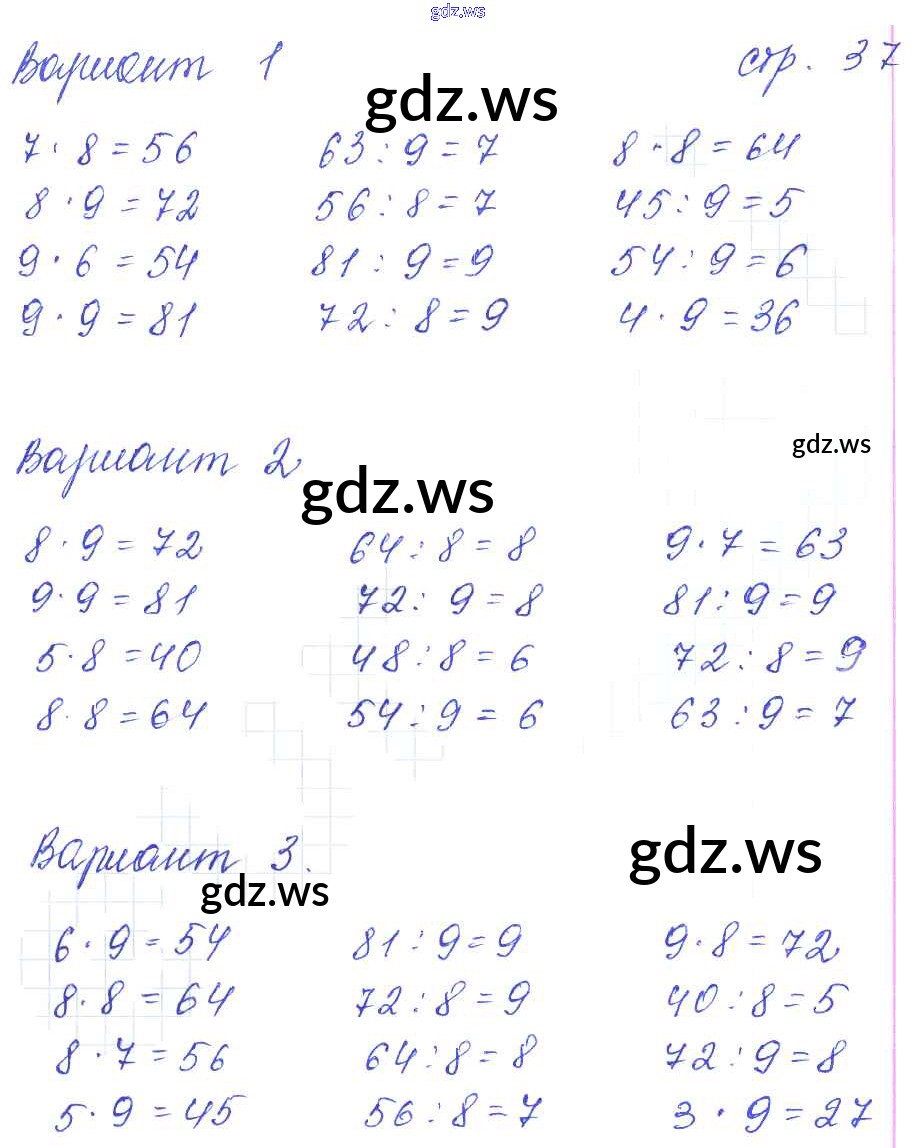 gdz.ws
Вариант 1 стр. 37
gdz.ws
7 · 8 = 56 63 : 9 = 7 8 · 8 = 64
8 · 9 = 72 56 : 8 = 7 45 : 9 = 5
9 · 6 = 54 81 : 9 = 9 54 : 9 = 6
9 · 9 = 81 72 : 8 = 9 4 · 9 = 36
gdz.ws
Вариант 2
gdz.ws
8 · 9 = 72 64 : 8 = 8 9 · 7 = 63
9 · 9 = 81 72 : 9 = 8 81 : 9 = 9
5 · 8 = 40 48 : 8 = 6 72 : 8 = 9
8 · 8 = 64 54 : 9 = 6 63 : 9 = 7
Вариант 3.
gdz.ws
gdz.ws
6 · 9 = 54 81 : 9 = 9 9 · 8 = 72
8 · 8 = 64 72 : 8 = 9 40 : 8 = 5
8 · 7 = 56 64 : 8 = 8 72 : 9 = 8
5 · 9 = 45 56 : 8 = 7 3 · 9 = 27